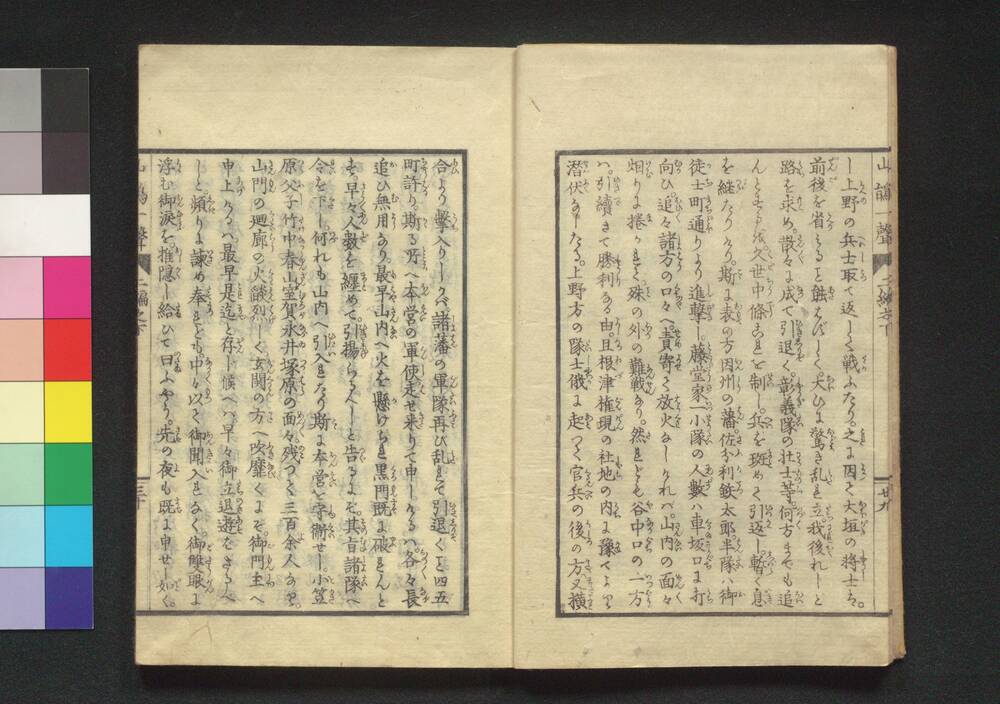 し上野の兵士取て返して戦ふたり。之に因て大垣の将士ら。
前後を省みるを蝕ばして大ひに驚き乱れ立我後れしと
路を求め。散々に成て引退く。彰義隊の壮士等。何方までも追
んとするを。久世中條これを制し。兵を斑めて引返し。暫く息
を継たりけり。斯ま表の方因州の藩佐分利鉄太郎半隊ハ御
徒士町通りより進撃し。藤堂家一小隊の人数ハ車坂口ま打
向ひ。追々諸方の口々へ責寄て放火なしければ。山内の面々
烟りま捲かれて。殊の外の難戦あり。然れども谷中口の一方
ハ。引續きて勝利ある由。且根津権現の社地の内ま豫てより
潜伏なしたる。上野方の隊士俄ま起つて官兵の後の方又横
合より撃入りしかバ諸藩の軍隊再び乱れて引退くこと四五
町許り。斯る所へ本営の軍使走せ来りて申しけるハ。各々長
追ひ無用あり。最早山内へ火を懸けられ黒門既ま破れんと
す。早々人数を纏めて。引揚らるべしと告るまぞ。其旨諸隊へ
令を下し。何れも山内へ引入れたり。斯ま本営を守衛せし。小笠
原父子竹中春山室賀永井塚原の面々残つて三百余人あり。
山門の廻廊の火𦦨烈しく玄関の方へ吹靡くまぞ。御門主へ
申上けるハ最早是迄と存し候へバ早々御立退遊をさるべ
しと。頻りま諌め奉れども。中々以て御聞入れなく。御雙眼ま
浮む御涙を。推隠し給ひて曰ふやう。先の夜も既ま申せし如く。